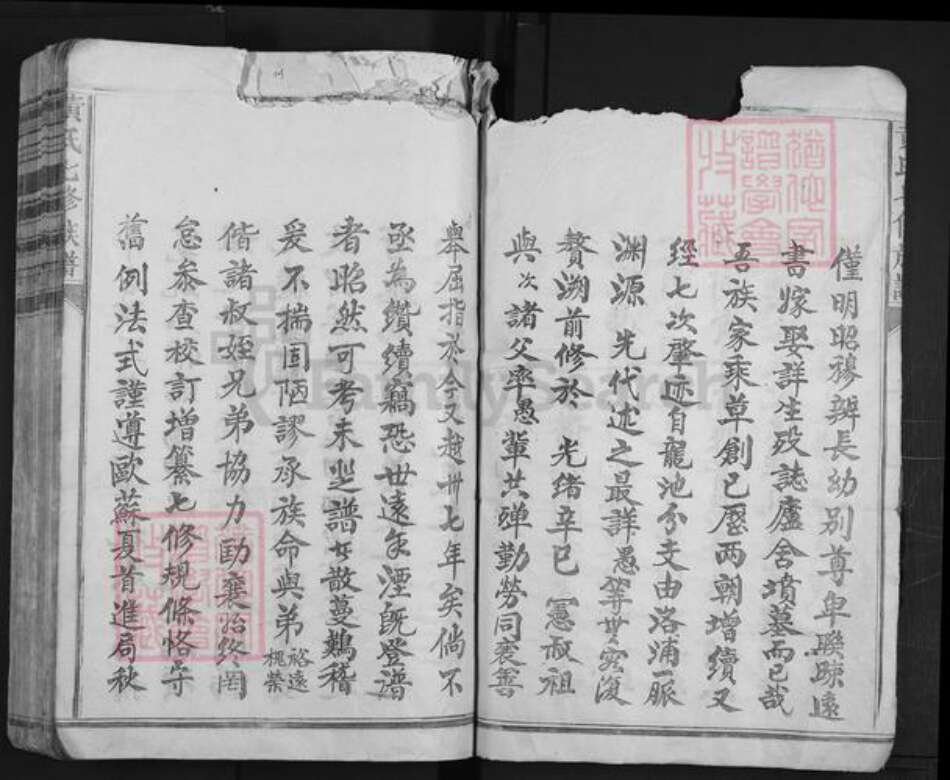 僅明昭穆辨長幼別尊卑聯疎遠
書嫁娶詳生歿誌廬舍墳墓而已哉
吾族家乘草創已歷兩朝增續又
經七次肇迹自龍池分支由洛浦一脈
渊源 先代述之最詳愚等世容復
贅溯前修於 光緒辛巳 憲叔祖
與次諸父率愚輩共殫勤勞同襄善
舉屈指於今又越卅七年矣倘不
亟為纘續竊恐世遠年湮既登譜
者昭然可考未登譜者散蔓難稽
爰不揣固陋謬承族命與弟裕遠槐榮
偕諸叔姪兄弟協力勷襄始終罔
怠叅查校訂增纂七修規條恪守
舊例法式謹遵歐蘇夏首進局秋
氏七修族譜
FamilySearch
譜學會
收藏